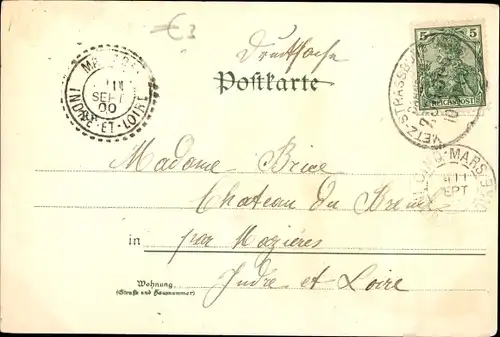 €3
Drucksache
Postkarte
5
REICHSPOST
METZ-STRASSBURG
11
SEPT
00
INDRE-ET-LOIRE
MARS
11
SEPT
Madame Brice
Chateau du
in par Mazières
Indre et Loire
Wohnung
(Strasse und Hausnummer)